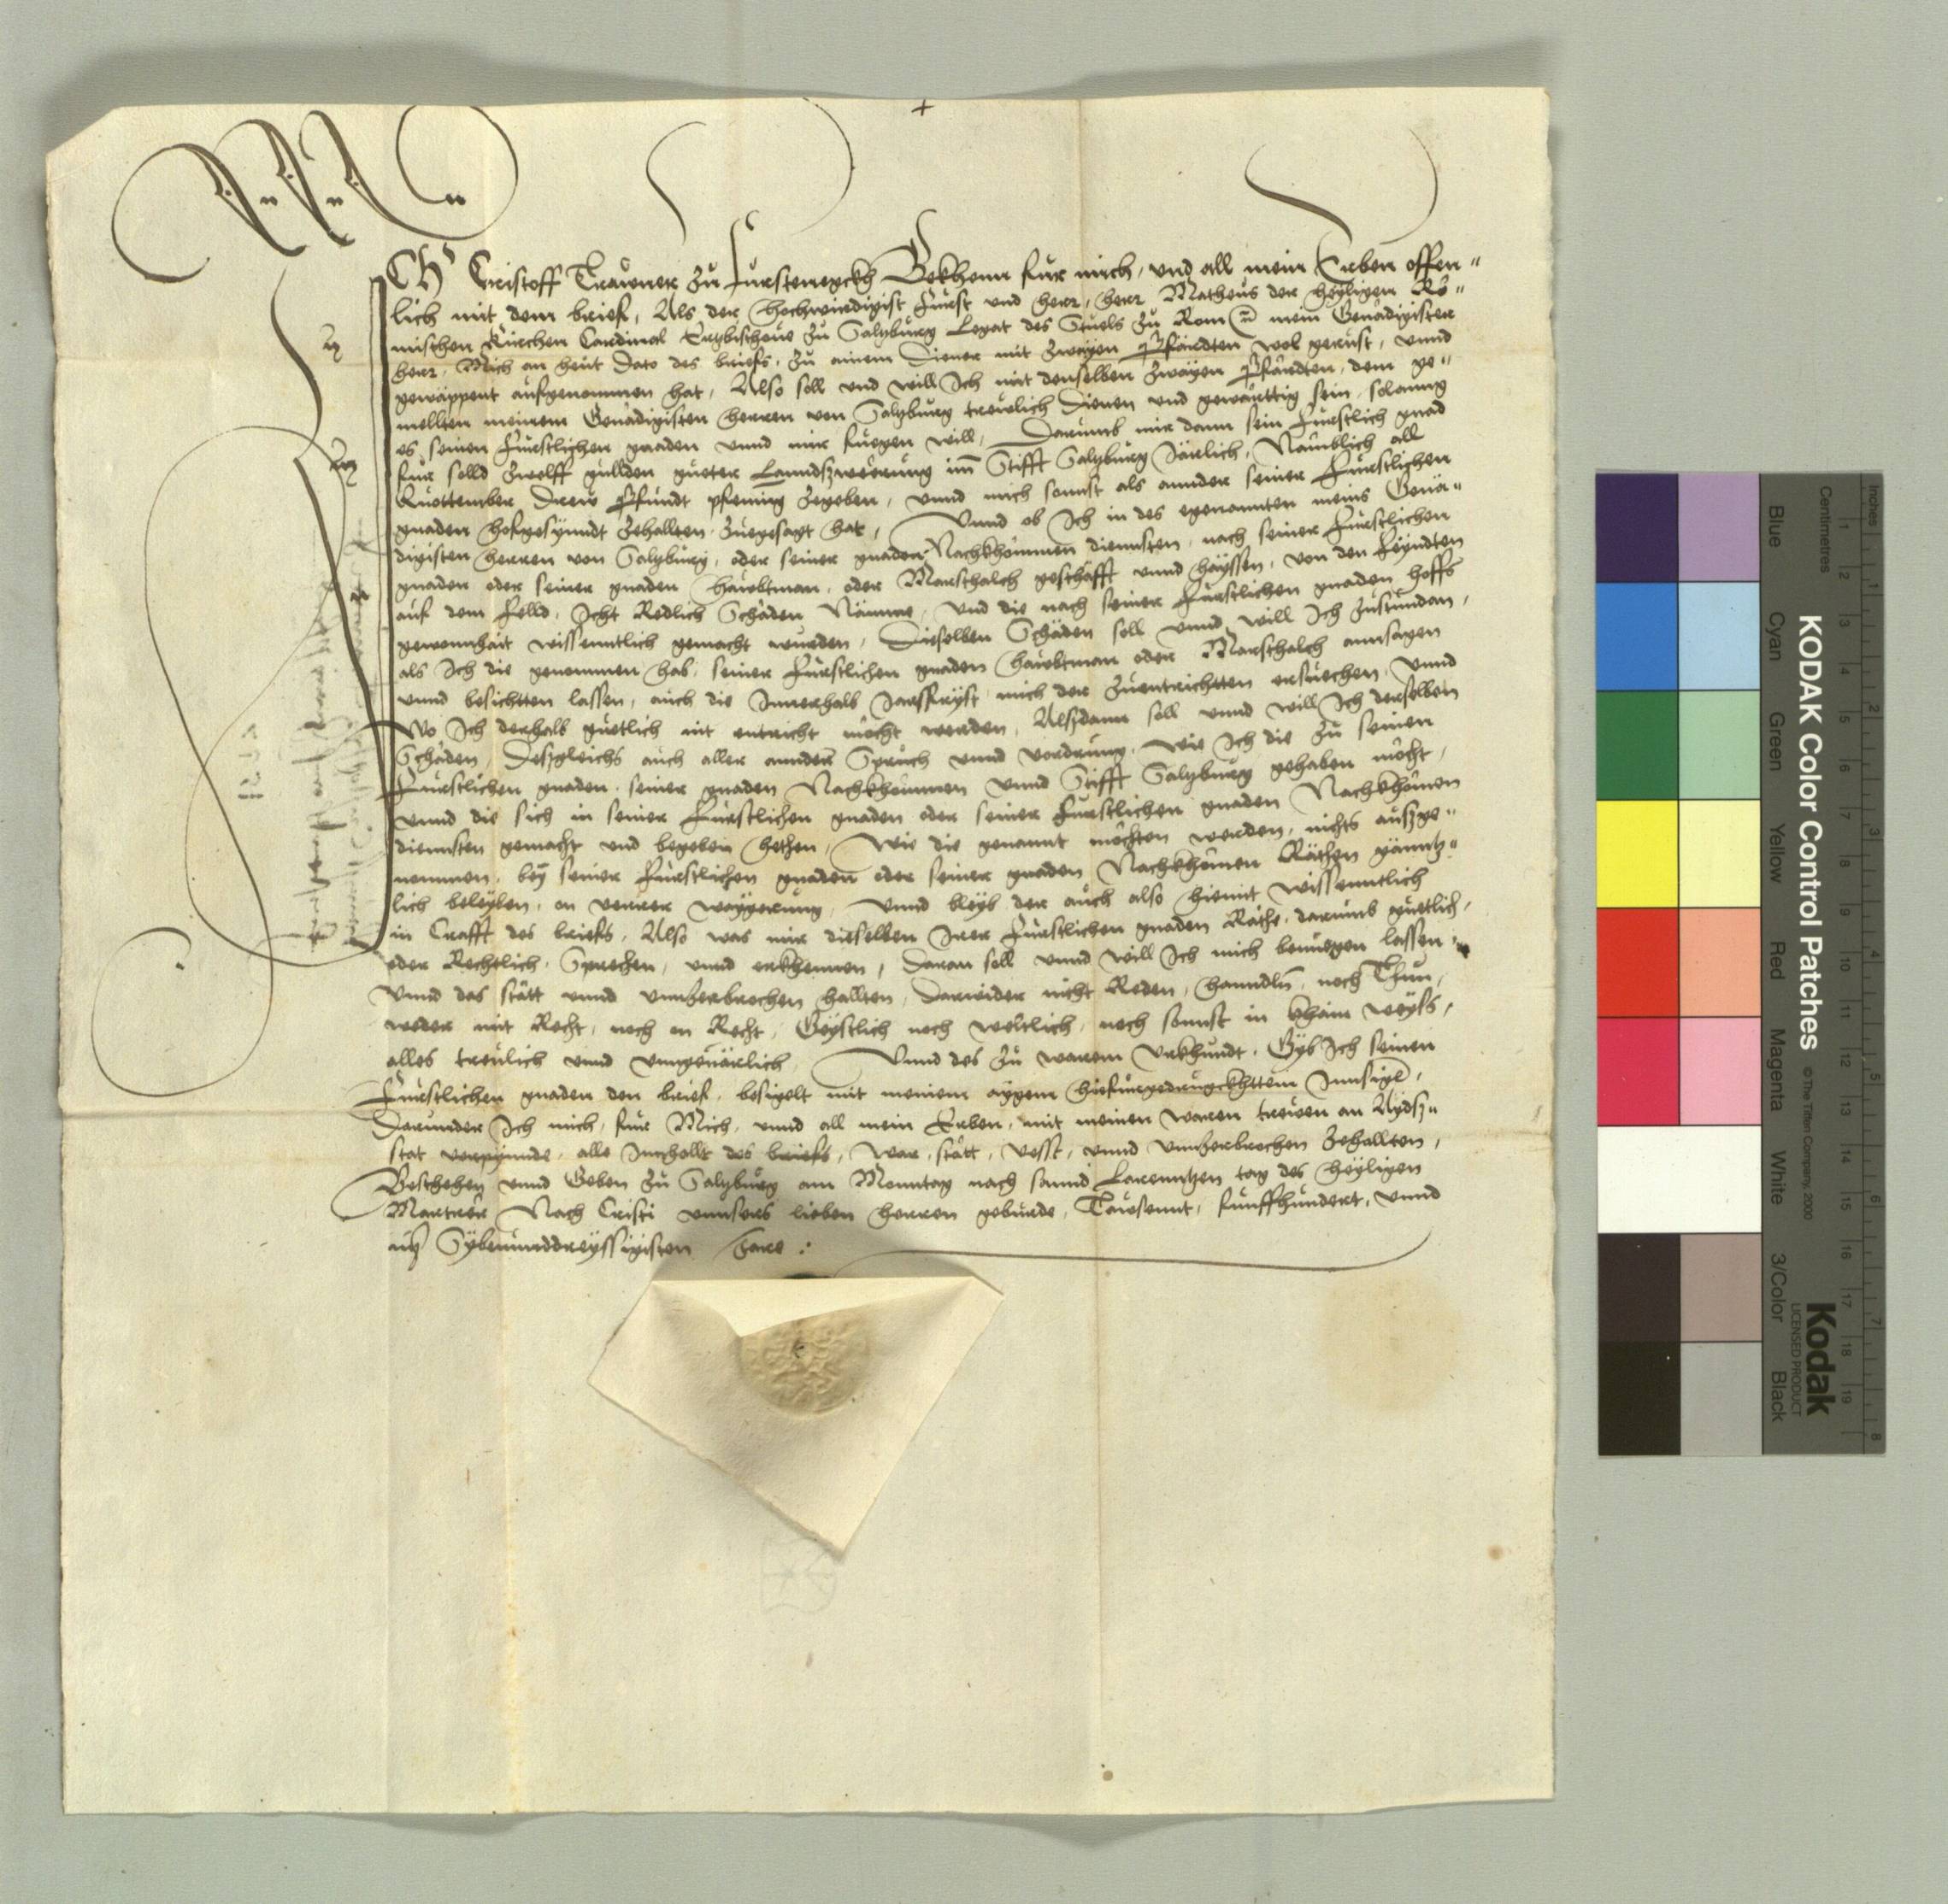 ICh Cristoff Trawner zu Furstenegckh Bekhenn fur mich, und all mein Erben offen"
lich mit dem brief, Als der Hochwirdigist Furst und herr, herr Matheus der heyligen Rö"
mischen Kirchen Cardinal Ertzbischove zu Saltzburg Legat des Stuels zu Rom mein Genädigister
herr, Mich an heut Dato des briefs, zu ainem Diener mit zwayen Pfärdten wol gerust, unnd
gewappent aufgenommen hat, Also soll und will Ich mit denselben zwayen Pfärdten, dem ge"
mellten meinem Genädigisten herren von Saltzburg treulich Dienen und gewarttig sein, solanng
es seinen Furstlichen gnaden unnd mir fuegen will, Darumb mir dann sein Furstlich gnad
fur solld zwelff gullden gueter Lanndszwerung im Stifft Saltzburg Järlich, Nämblich all
Quottember Drew Pfundt pfening zegeben, unnd mich sonnst als annder seiner Furstlichen
gnaden hofgesynndt zehallten zuegesagt hat, Unnd ob Ich in des egenannten meins Genä"
digisten herren von Saltzburg, oder seiner gnaden Nachkhommen diennsten, nach seiner Furstlichen
gnaden oder seiner gnaden haubtman, oder Marschalch geschäfft unnd hayssen, von den Feyndten
auf dem Felld, Icht Redlich Schäden Nämme, Und die nach seiner Furstlichen gnaden hoffs
gewonnhait wissenntlich gemacht wurden, Dieselben Schäden soll unnd will Ich zustundan,
als Ich die genommen hab, seiner Furstlichen gnaden haubtman oder Marschalch annsagen
unnd besichtten lassen, auch die Innerhalb Jarssfryst mich der zuentrichtten ersuechen, Unnd
Wo Ich derhalb guetlich nit entricht möcht werden, Alszdann soll unnd will Ich derselben
Schäden, Deszgleichs auch aller annder Spruch unnd vordrung, Wie Ich die zu seinen
Furstlichen gnaden, seiner gnaden Nachkhommen unnd Stifft Saltzburg gehaben möcht,
unnd die sich in seiner Furstlichen gnaden oder seiner Furstlichen gnaden Nachkhomen
diennsten gemacht und begeben hethen, Wie die genannt möchten werden, nichts auszge"
nommen, bey seiner Furstlichen gnaden oder seiner gnaden Nachkhomen Räthen gänntz"
lich beleyben, on verrer waygerung, Unnd bleyb der auch also hiemit wissenntlich
in Crafft des briefs, Also was mir dieselben Irer Furstlichen gnaden Räthe, darumb guetlich,
oder Rechtlich, Sprechen, unnd erkhennen, Daran soll unnd will Ich mich benuegen lassen,
Unnd das stätt unnd unnzerbrochen hallten, Darwider nicht Reden, hanndln, noch Thun,
weder mit Recht, noch on Recht, Geystlich noch weltlich, noch sonnst in khain weyss,
alles treulich unnd ungevärlich, Unnd des zu warem Urkhundt, Gyb Ich seinen
Furstlichen gnaden den brief, besigelt mit meinem aygem hiefurgedrugckhttem Innsigl,
Darunder Ich mich, fur Mich, unnd all mein Erben, mit meinen waren trewen an Aydsz"
stat verpynnde, alls Innhallt des briefs, War, stätt, Vesst, unnd unnzerbrochen zehallten,
Beschehen unnd Geben zu Saltzburg am Monntag nach sannd Larenntzen tag des heyligen
Martrer Nach Cristi unnsers lieben herren geburde, Tawsennt, funffhundert, unnd
im Sybenunddreyssigisten Jare :